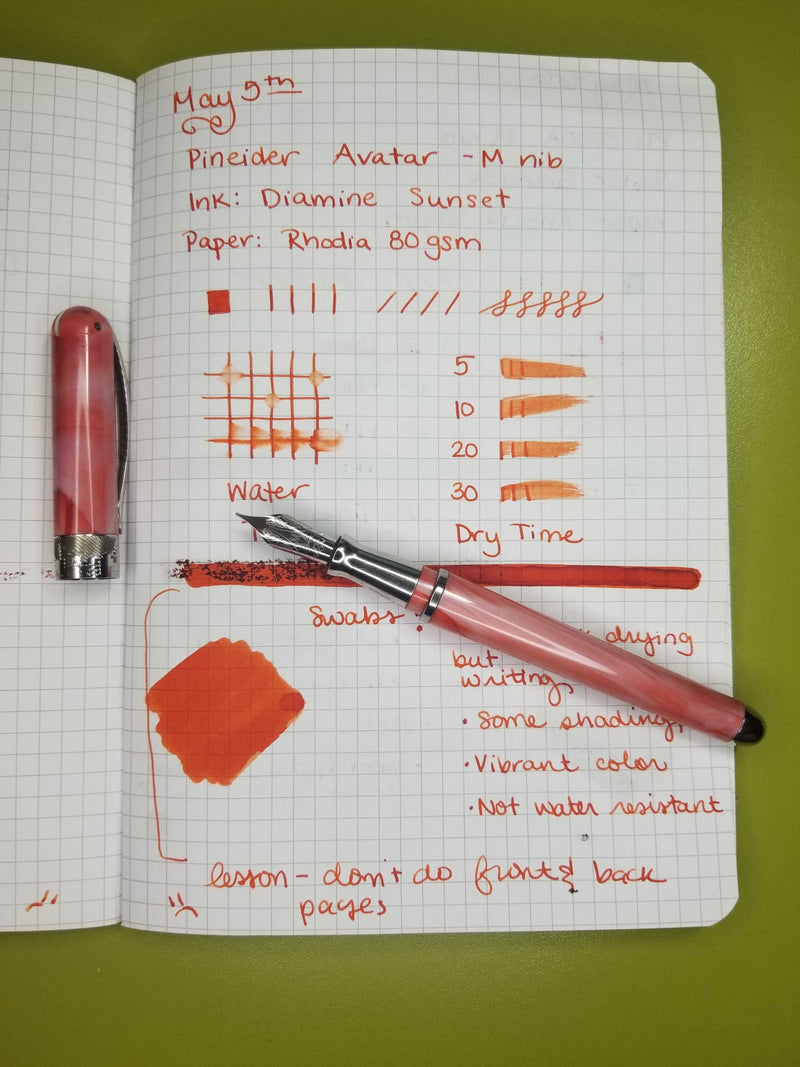 May 9th
Pineider Avatar - M nib
Ink: Diamine Sunset
Paper: Rhodia 80 gsm
5
10
20
30
Water
Dry Time
Swabs
drying
but
writing
• Some shading
• Vibrant color
• Not water resistant
lesson - don't do front & back
pages